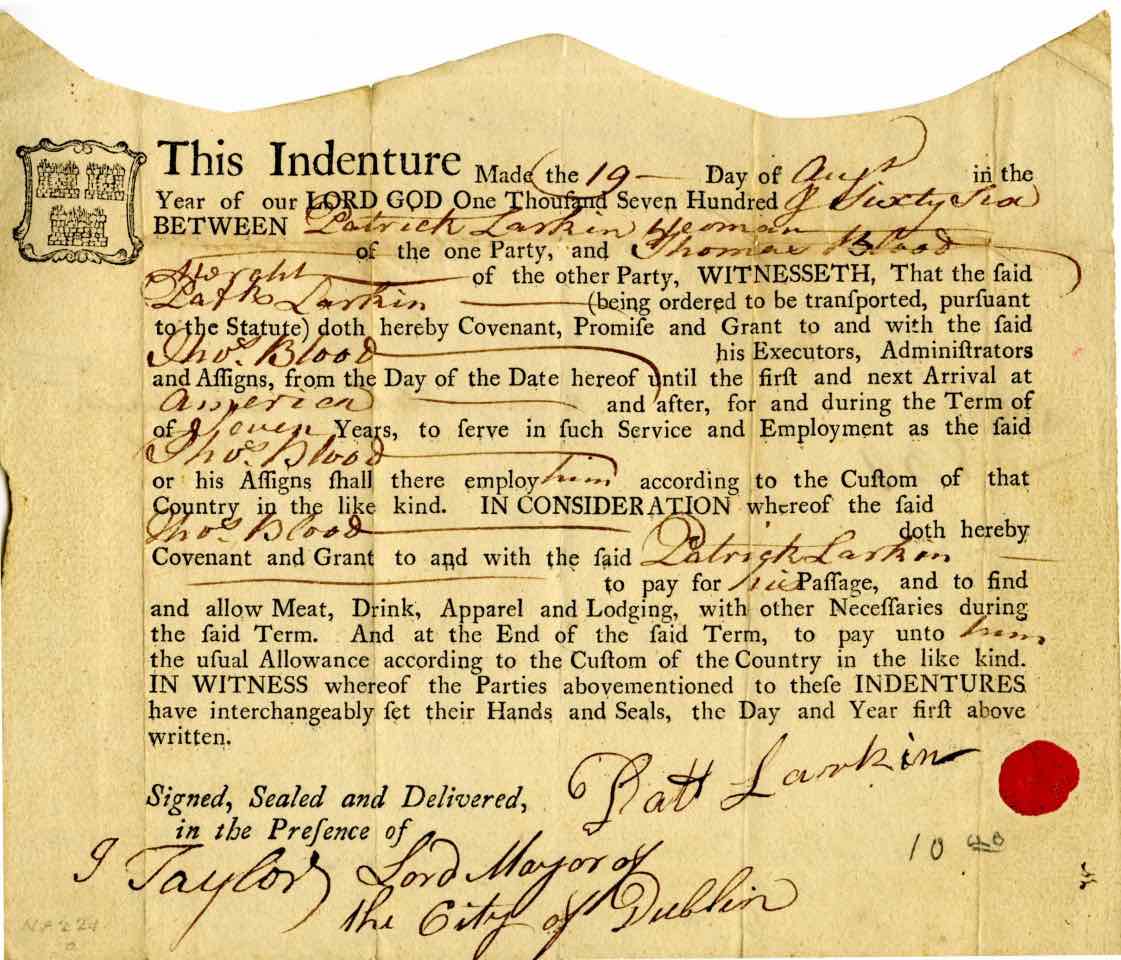 This Indenture Made the 19 Day of Augt in the
Year of our LORD GOD One Thouſand Seven Hundred & Sixty Six
BETWEEN Patrick Larkin Yeoman
of the one Party, and Thomas Blood
of the other Party, WITNESSETH, That the ſaid
Patk Larkin (being ordered to be tranſported, purſuant
to the Statute) doth hereby Covenant, Promiſe and Grant to and with the ſaid
Thos. Blood his Executors, Adminiſtrators
and Aſſigns, from the Day of the Date hereof until the firſt and next Arrival at
America and after, for and during the Term of
of Seven Years, to ſerve in ſuch Service and Employment as the ſaid
Thos. Blood
or his Aſſigns ſhall there employ him according to the Cuſtom of that
Country in the like kind. IN CONSIDERATION whereof the ſaid
Thos. Blood doth hereby
Covenant and Grant to and with the ſaid Patrick Larkin
to pay for his Paſſage, and to find
and allow Meat, Drink, Apparel and Lodging, with other Neceſſaries during
the ſaid Term. And at the End of the ſaid Term, to pay unto him
the uſual Allowance according to the Cuſtom of the Country in the like kind.
IN WITNESS whereof the Parties abovementioned to theſe INDENTURES
have interchangeably ſet their Hands and Seals, the Day and Year firſt above
written.
Patt Larkin
Signed, Sealed and Delivered,
in the Preſence of
J Taylor Lord Mayor of
the City of Dublin
10